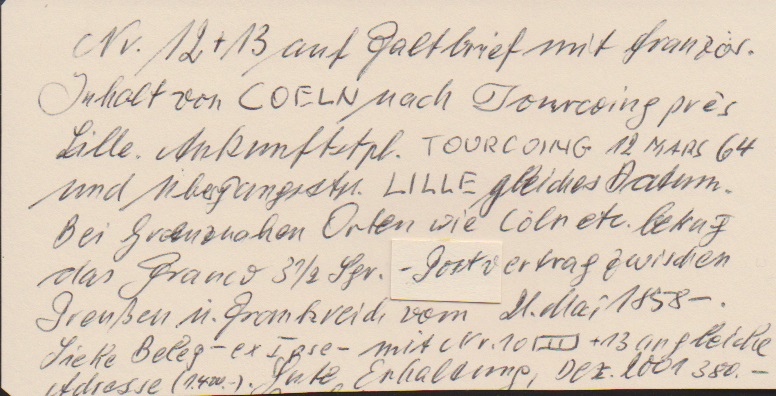 Nr. 12+13 auf Faltbrief mit französ.
Inhalt von COELN nach Tourcoing près
Lille. Ankunftstpl. TOURCOING 12 MARS 64
und Übergangsstp. LILLE gleiches Datum.
Bei Grenznahen Orten wie Cöln etc. betrug
das Franco 3 1/2 Sgr. - Postvertrag zwischen
Preußen u. Frankreich vom 21. Mai 1858 -.
Siehe Beleg - ex - mit Nr. 10 III + 13 an gleiche
Adresse (1.400.-). Gute Erhaltung, Dez. 2001 380.-